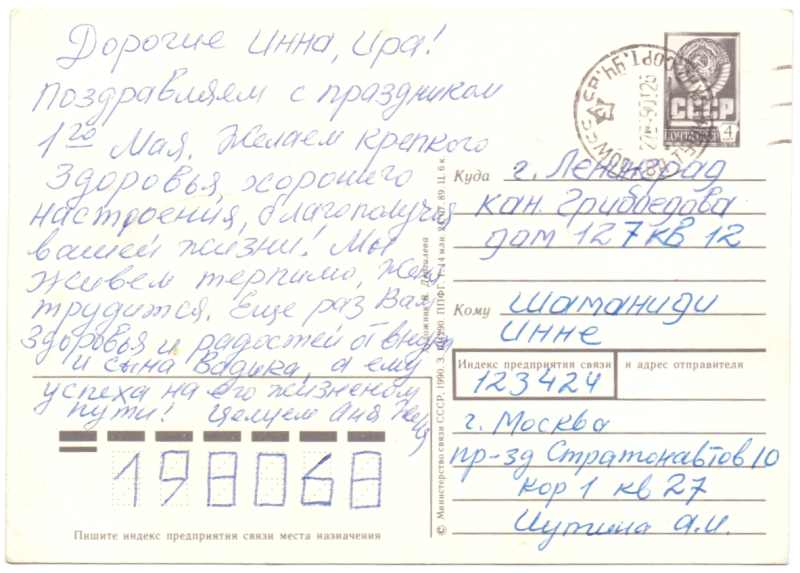 Дорогие Инна, Ира!
Поздравляем с праздником
1го Мая. Желаем крепкого
здоровья, хорошего
настроения, благополучия
вашей жизни! Мы
живем терпимо, Женя
трудится. Еще раз Вам
здоровья и радостей от внука
и сына Вадика, а ему
успеха на его жизненом
пути! Целуем Аня Женя
СССР
ПОЧТА
4
МОСКВА
Куда г. Ленинград
кан. Грибоедова
дом 127 кв 12
Кому Шаманиди
Инне
Индекс предприятия связи и адрес отправителя
123424
г. Москва
пр-зд Стратонавтов 10
кор 1 кв 27
А.И.
198068
Пишите индекс предприятия связи места назначения
© Министерство связи СССР, 1990. З. ППФГ. 89. Ц. 6 к.
Художник